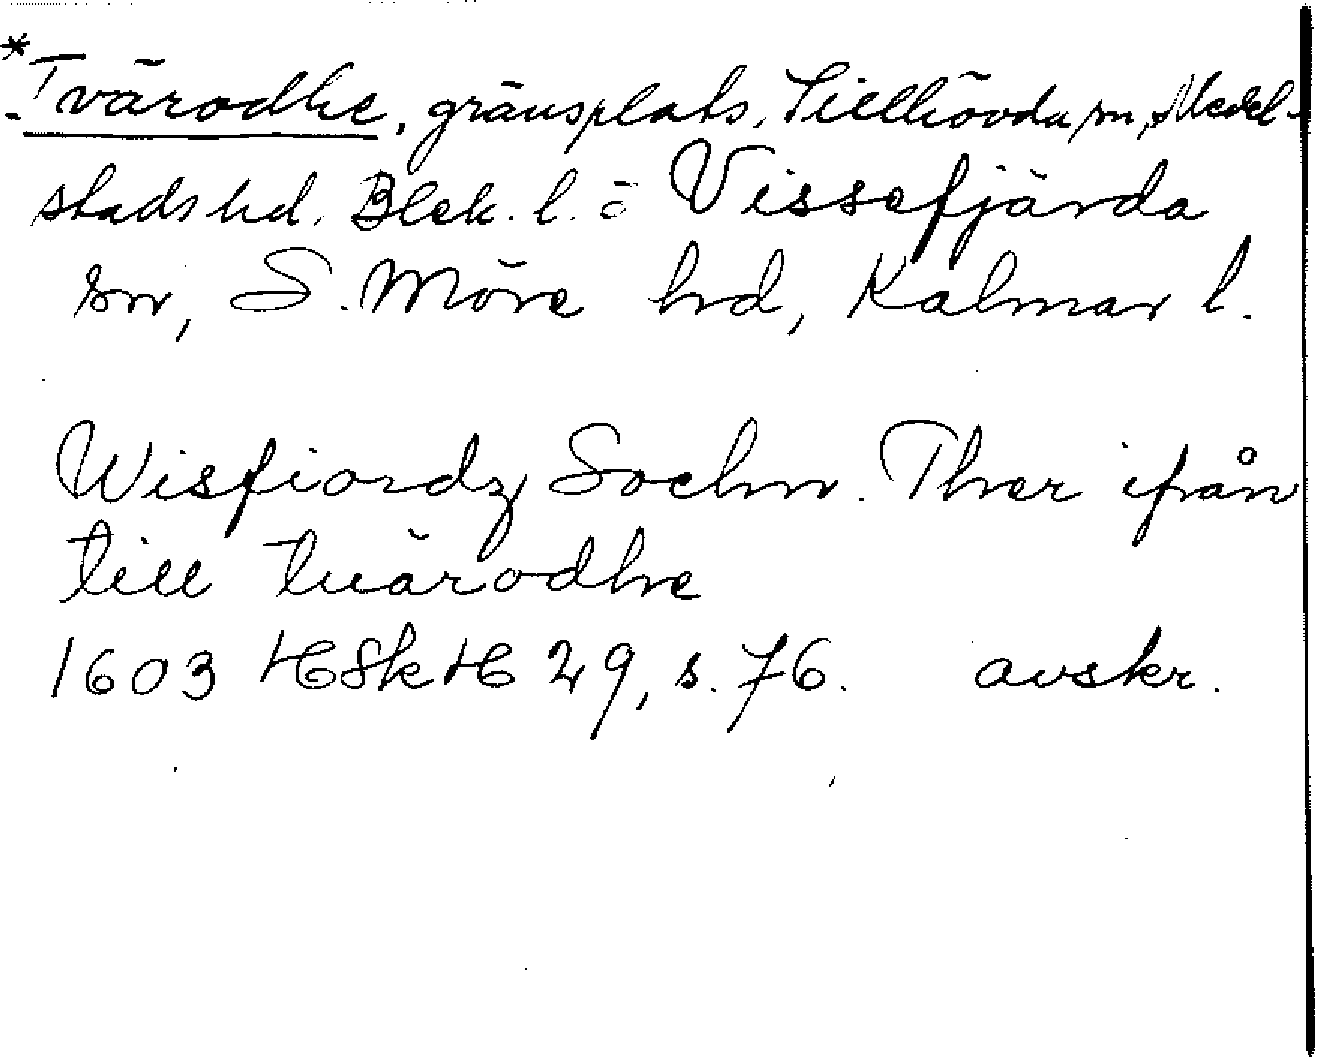 *Tvärodhe, gränsplats, Tillhövda sn, Medel-
stads hd. Blek. l. o Vissefjärda
sn, S. Möre hd, Kalmar l.
Wisfiordz Sochn. Ther ifrån
till tuärodhe
1603 HSkH 29, s. 76. avskr.